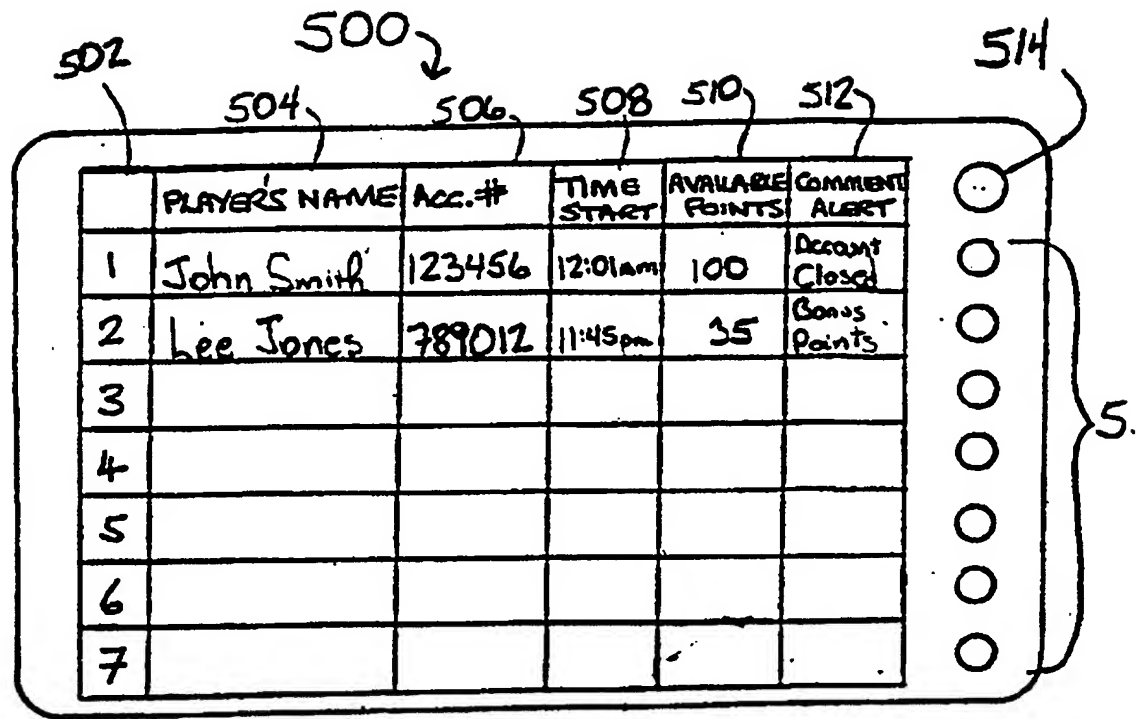 500
502
514
504
506
508
510
512
PLAYER'S NAME
ACC.#
TIME START
AVAILABLE POINTS
COMMENT ALERT
1 John Smith 123456 12:01am 100 Account Closed
2 Lee Jones 789012 11:45pm 35 Bonus Points
3
4
5
6
7
5.